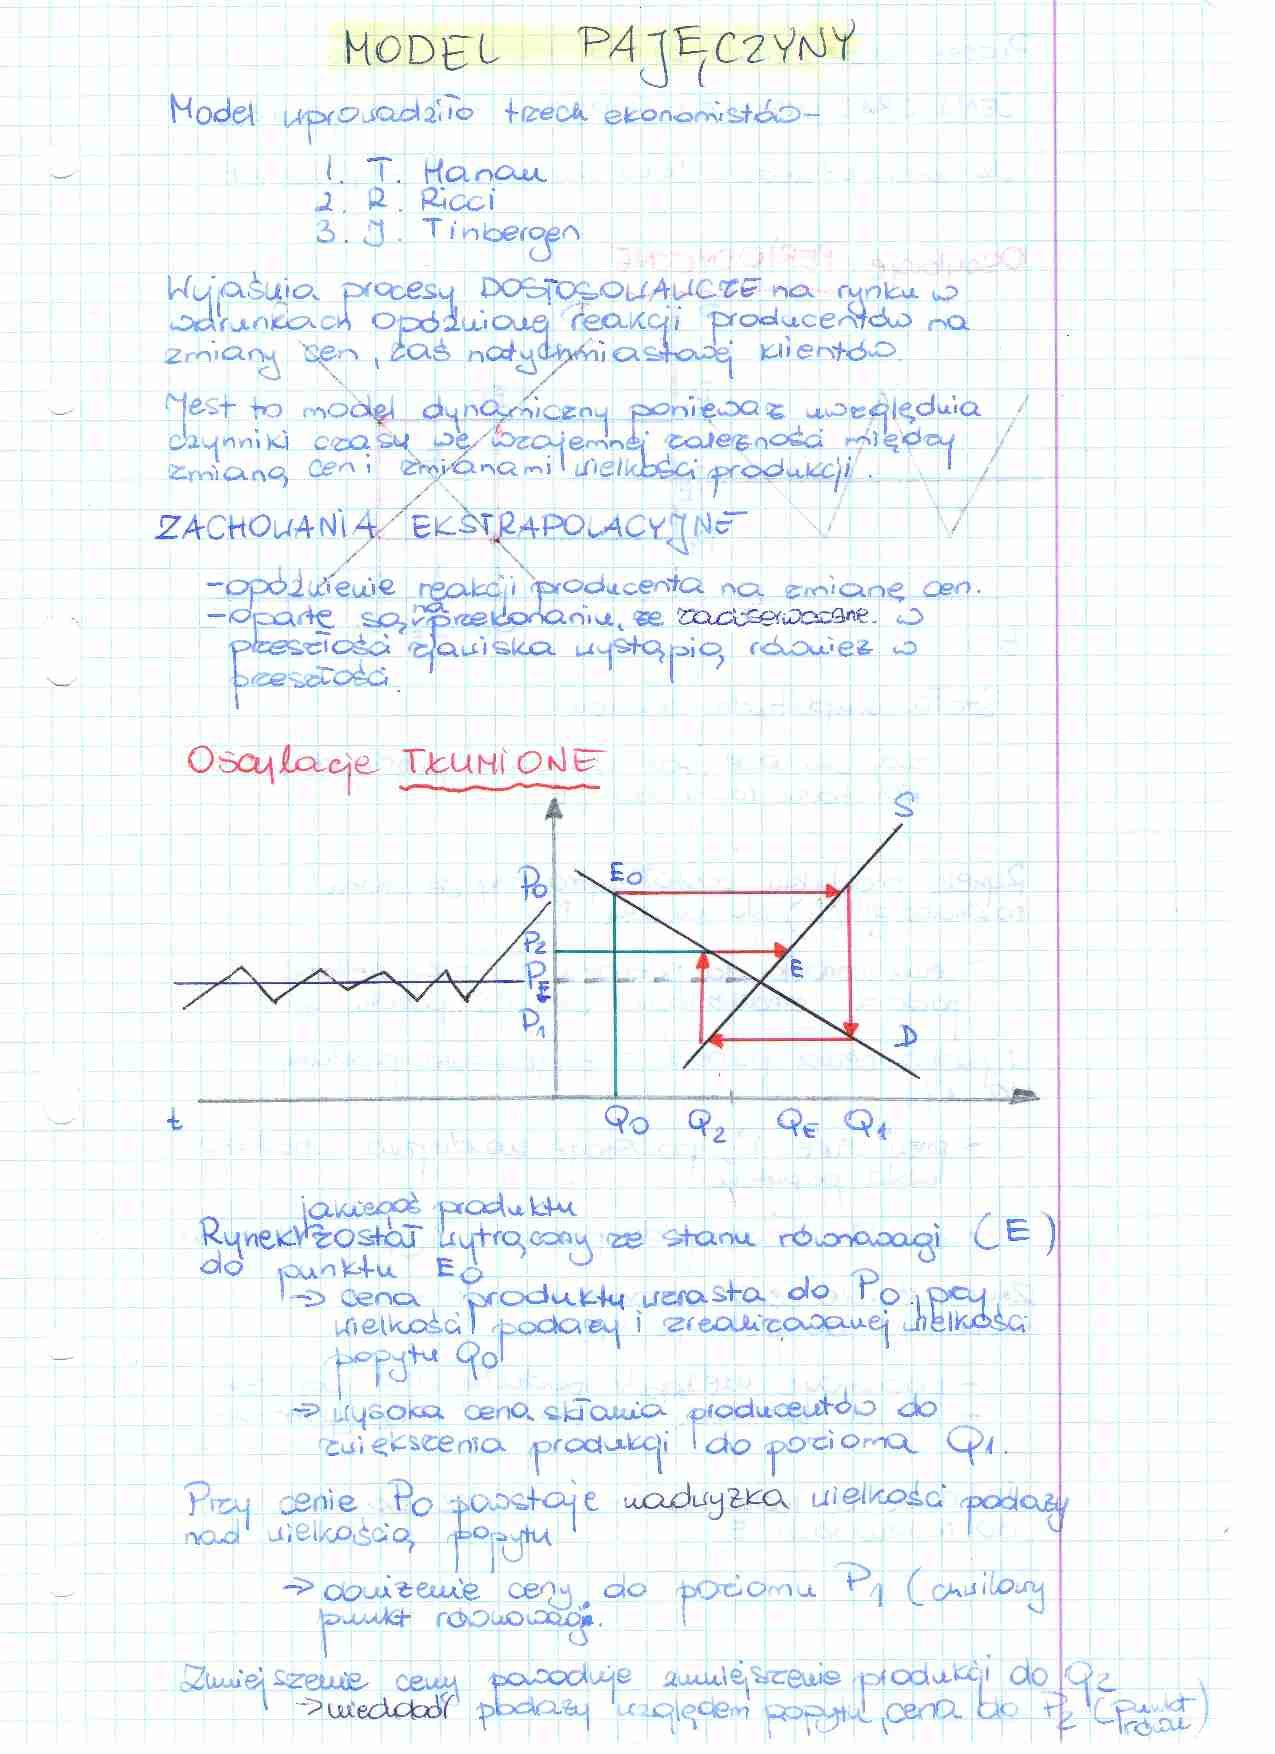 MODEL PAJĘCZYNY
Model wprowadziło trzech ekonomistów-
1. T. Hanau
2. R. Ricci
3. J. Tinbergen
Wyjaśnia procesy DOSTOSOWAWCZE na rynku w
warunkach opóźnionej reakcji producentów na
zmiany cen, zaś natychmiastowej klientów.
Jest to model dynamiczny ponieważ uwzględnia
czynniki czasy we wzajemnej zależności między
zmianą cen i zmianami wielkości produkcji.
ZACHOWANIA EKSTRAPOLACYJNE
-opóźnienie reakcji producenta na zmianę cen.
-oparte są na przekonaniu, że zaobserwowane w
przeszłości zjawiska wystąpią również w
przeszłości.
Oscylacje TŁUMIONE
S
P0 E0
P2
PE E
P1 D
t Q0 Q2 QE Q1
jakiegoś produktu
Rynek został wytrącony ze stanu równowagi (E)
do punktu E0
→ cena produktu wzrasta do P0, przy
wielkości podaży i zrealizowanej wielkości
popytu Q0
→ wysoka cena skłania producentów do
zwiększenia produkcji do pozioma Q1.
Przy cenie P0 powstaje nadwyżka wielkości podaży
nad wielkością popytu
→ obniżenie ceny do poziomu P1 (chwilowy
punkt równowagi.
Zmniejszenie ceny powoduje zmniejszenie produkcji do Q2
→ niedobór podaży względem popytu, cena do P2 (punkt
równ)